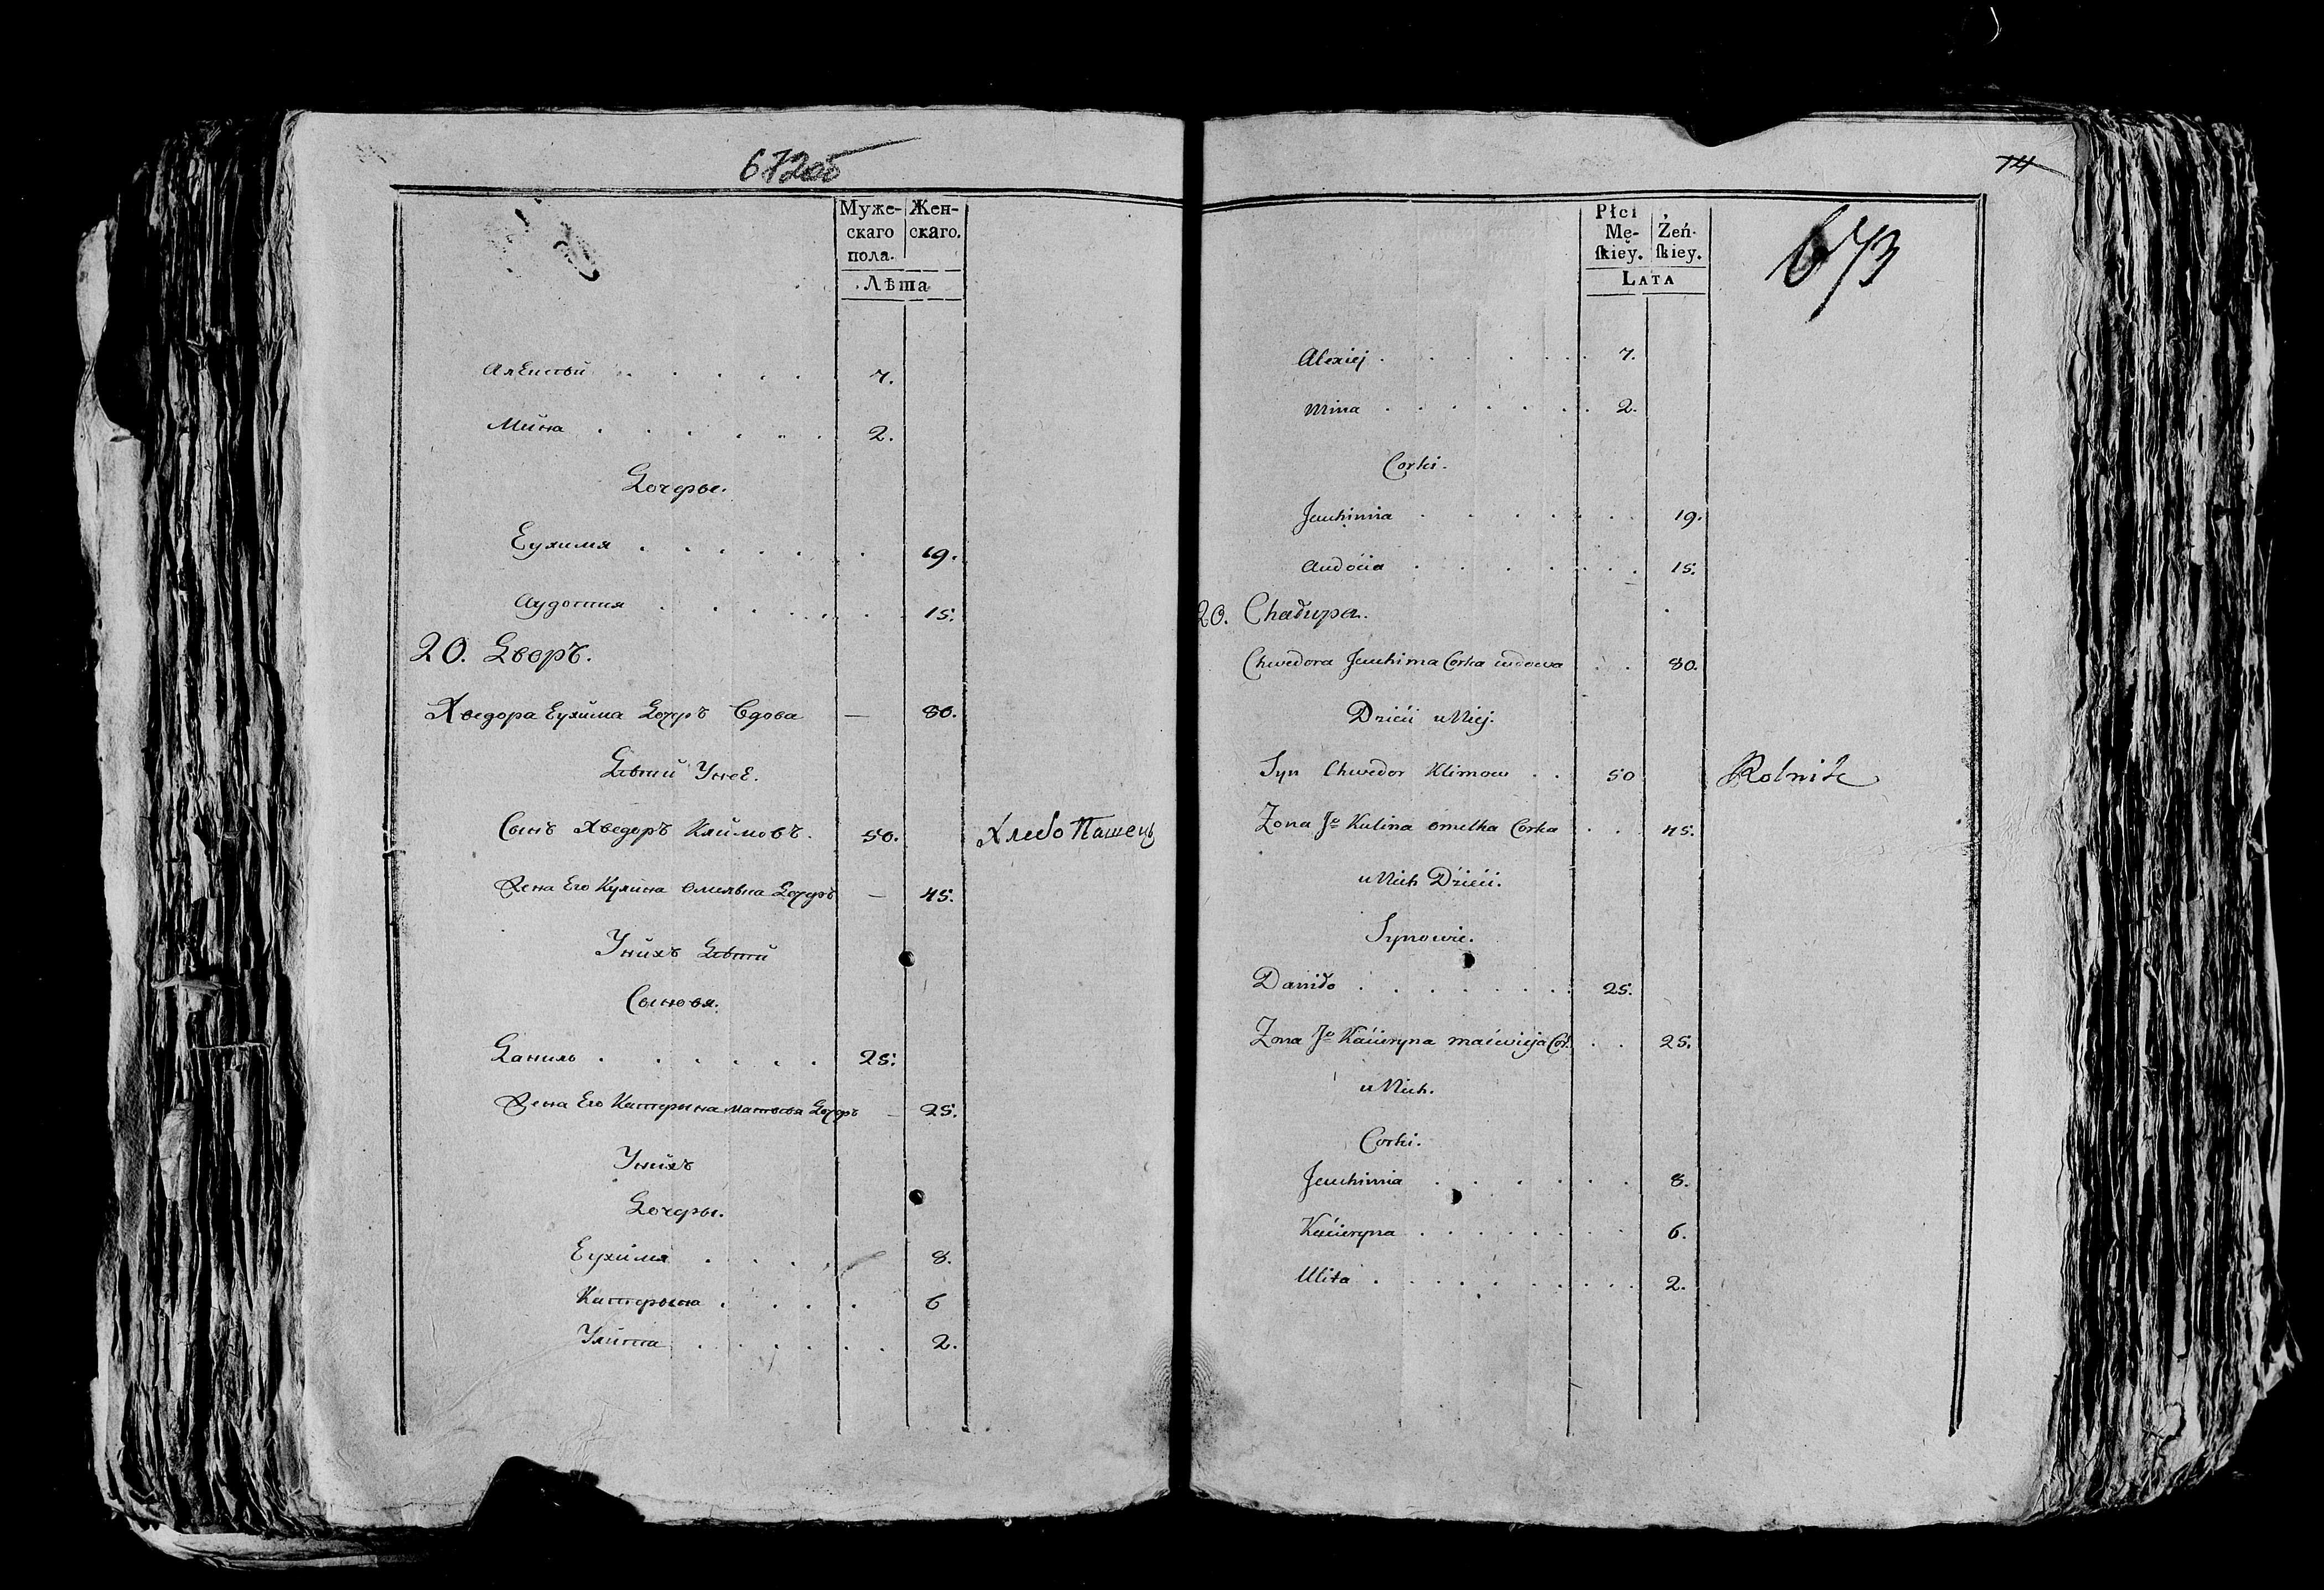 672об
Муже- Жен-
скаго скаго.
пола.
Лѣта
Алексѣй . . . . . 7.
Мина . . . . . . 2.
Дочеры.
Еухимя . . . . . . 19.
Аудотия . . . . . . 15.
20. Дворъ.
Хведора Еухима Дочеръ Вдова — 80.
Дѣти У нее.
Сынъ Хведоръ Климовъ. 50. Хлебо Пашецъ
Жена Его Кулина Омелька Дочеръ — 45.
У нихъ Дѣти
Сыновя.
Данило . . . . . . 25.
Жена Его Катерына Матвея Дочеръ — 25.
У нихъ
Дочеры.
Еухимя . . . . 8.
Катерына . . . . 6
Улита . . . . . . 2.
74
673
Płci
Mę- Żeń-
ſkiey. ſkiey.
Lata
Alexiej . . . . . . 7.
Mina . . . . . . . 2.
Corki.
Jeuchimia . . . . . . . 19.
Audocia . . . . . . . 15.
20. Chałupa.
Chwedora Jeuchima Corka wdowa . . 80.
Dzieci u Niej.
Syn Chwedor Klimow . . 50 Rolnik
Zona Jo Kulina Omelka Corka . . . 45.
u Nich Dzieci.
Synowie.
Daniło . . . . . . . . 25.
Zona Jo Kacieryna Maćwieja Cor: . . 25.
u Nich.
Corki.
Jeuchimia . . . . . . . 8.
Kacieryna . . . . . . . . 6.
Ulita . . . . . . . . . . 2.